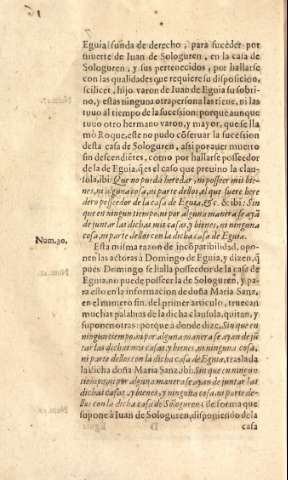 Eguia se funda de derecho, para suceder por
muerte de Iuan de Sologuren, en la casa de
Sologuren, y sus pertenecidos, por hallarse
con las qualidades que requiere su disposicion,
scilicet, hijo varon de Iuan de Eguia su sobri-
no, y estas ninguna otra persona las tiene, ni las
tuuo al tiempo de la sucession: porque aunque
tuuo otro hermano varon, y mayor, que se lla
mò Roque, este no pudo cōseruar la sucession
desta casa de Sologuren, assi por auer muerto
sin descendiētes, como por hallarse posseedor
de la de Eguia, q̄ es el caso que preuino la clau-
sula, ibi: Que no pueda heredar, ni posseer mis bie-
nes, ni alguna cosa, ni parte dellos, al que fuere here
dero posseedor de la casa de Eguia, &c. & ibi: Sin
que en ningun tiempo, ni por alguna manera se ayā
de juntar las dichas mis casas, y bienes, ni ninguna
cosa, ni parte dellos con la dicha casa de Eguia.
Num.30. Esta misma razon de incōpatibilidad, opo-
nen las actoras à Domingo de Eguia, y dizen, q̄
pues Domingo se halla posseedor de la casa de
Eguia, no puede posseer la de Sologuren, y pa-
ra esto en la informacion de doña Maria Sanz,
en el numero fin. del primer articulo, truecan
muchas palabras de la dicha clausula, quitan, y
suponen otras: porque à donde dize, Sin que en
ningun tiempo, ni por alguna manera se ayan de jun
tar las dichas mis casas, y bienes, ni ninguna cosa,
ni parte dellos con la dicha casa de Eguia, traslada
la dicha doña Maria Sanz, ibi: Sin que en ningun
tiempo, ni por alguna manera se ayan de juntar las
dichas casas, y bienes, y ninguna cosa, ni parte de-
llos con la dicha casa de Sologuren: de forma que
supone à Iuan de Sologuren, disponiendo de la
D casa